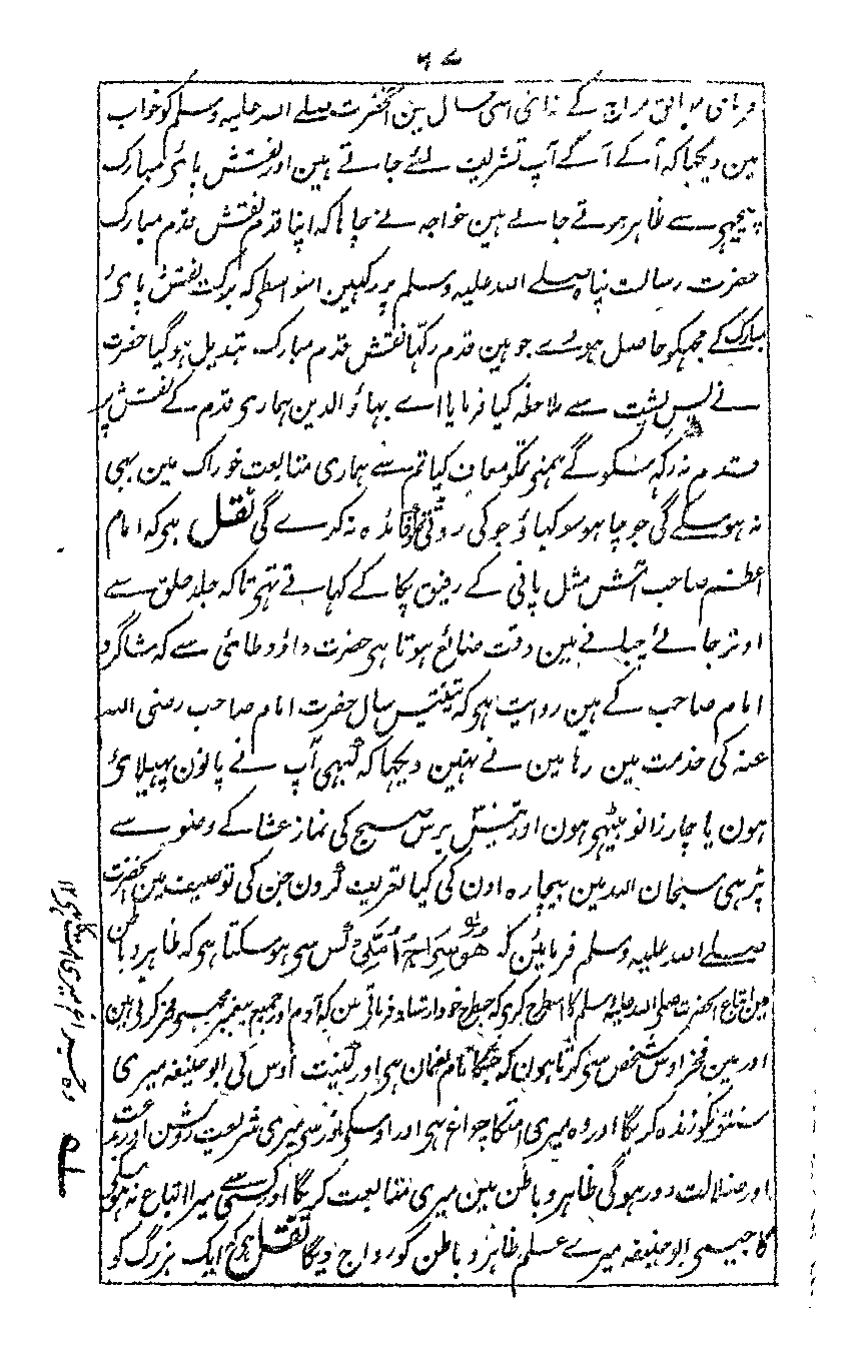 ۶۷
موافق مزاج کے نہ آئی اسی سال مین آنحضرت صلے اللہ علیہ وسلم کو خواب
مین دیکھا کہ آگے آگے آپ تشریف لئے جاتے ہین اور نقش پائے مبارک
پیچھے سے ظاہر ہوتے جاتے ہین خواجہ نے چاہا کہ اپنا قدم نقش قدم مبارک
حضرت رسالت پناہ صلے اللہ علیہ وسلم پر رکہین اسواسطے کہ برکت نقش پائے
مبارک کے مجہکو حاصل ہووے جوہین قدم رکہا نقش قدم مبارک تبدیل ہوگیا حضرت
نے پس پشت سے ملاحظہ کیا فرمایا اے بہاؤالدین ہماری قدم کے نقش پر
قدم نہ رکہ سکوگے ہمنے تمکو معاف کیا تم سے ہماری متابعت خوراک مین بہی
نہ ہوسکے گی جو چاہو سو کہاؤ جو کی روٹی تمکو فائدہ نہ کرے گی نقل ہی کہ امام
اعظم صاحب آش مثل پانی کے رقیق پکا کے کہاتے تہے تاکہ جلد حلق سے
اوتر جائے چبانے مین وقت ضائع ہوتا ہی حضرت داؤد طائی سے کہ شاگرد
امام صاحب کے ہین روایت ہی کہ تینتیس سال حضرت امام صاحب رضی اللہ
عنہ کی خدمت مین رہا مین نے نہین دیکہا کہ کبہی آپ نے پاؤن پہیلائے
ہون یا چار زانو بیٹہے ہون اور تیس برس صبح کی نماز عشا کے وضو سے
پڑہی سبحان اللہ مین بیچارہ اون کی کیا تعریف کرون جن کی توصیف مین آنحضرت
صلے اللہ علیہ وسلم فرمائین کہ ھُوَ سِرَاجُ اُمَّتِیْ کس سی ہوسکتا ہی کہ ظاہر و باطن
مین اتباع آنحضرت صلی اللہ علیہ وسلم کا اسطرح کری کہ جسطرح خود ارشاد فرماتی ہین کہ آدم اور جمیع پیغمبر مجہسی فخر کرتی ہین
اور مین فخر اوس شخص سی کرتا ہون کہ جسکا نام نعمان ہی اور کنیت اوس کی ابوحنیفہ میری
سنتونکو زندہ کریگا اور وہ میری امتکا چراغ ہی اور اوسکی نور سی میری شریعت روشن اور بدعت
اور ضلالت دور ہوگی ظاہر و باطن مین میری متابعت کریگا اور کسی سے میرا اتباع نہ ہوسکی
گا جیسی ابوحنیفہ میرے علم ظاہر و باطن کو رواج دیگا نقل ہی کہ ایک بزرگ کو
سلہ وہ چراغ میری امت کا ہی ۱۲